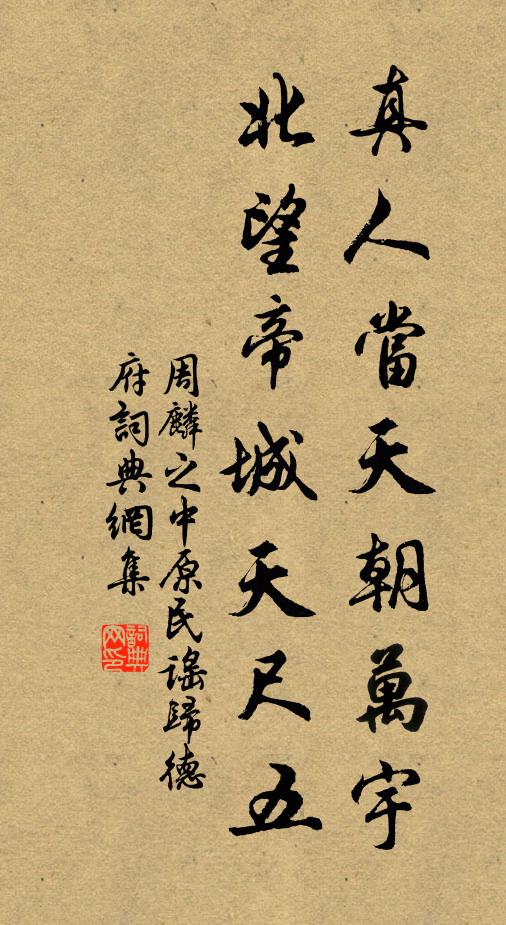 真人當天朝萬宇
北望帝城天尺五
周麟之中原民謠歸德
府詞典網集
詞典
网印